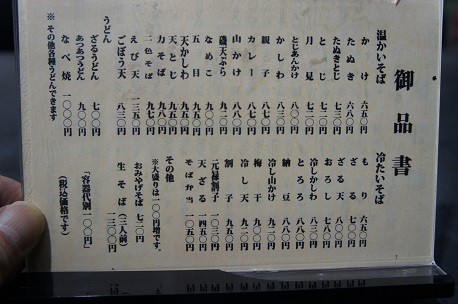 御品書
温かいそば
かけ 六五〇円
たぬき 六八〇円
たぬきとじ 七三〇円
とじ 七三〇円
月見 七三〇円
とじあんかけ 八〇〇円
かしわ 八三〇円
親子
カレー
山かけ
磯天ぷら
なめこ
五目
天かしわ
天とじ
力そば
二色そば
えび天 一三五〇円
ごぼう天 八三〇円
うどん
ざるうどん 七〇〇円
あつあつうどん 九〇〇円
なべ焼 一〇〇〇円
※その他各種うどんできます
冷たいそば
もり 六五〇円
ざる 七〇〇円
ざる天
おろし 七八〇円
冷しかしわ 八三〇円
とろろ 八八〇円
納豆 八八〇円
冷し山かけ
梅干 九〇〇円
冷し天
割子 九五〇円
二元禄割子 一〇三〇円
天ざる 一四五〇円
そば弁当 一〇五〇円
その他
※大盛りは一〇〇円増です。
おみやげそば 七二〇円
生そば(三人前) 一三〇〇円
「容器代別一〇〇円」
(税込価格です)